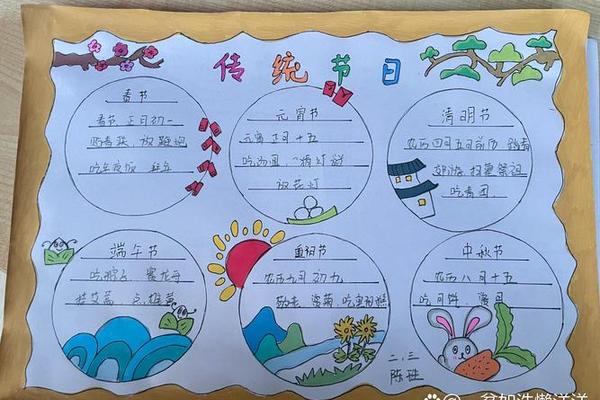 传统节日
春节
春节 正月初一
贴春联、放鞭炮
吃年夜饭 拜年
元宵节
元宵 正月十五
吃汤圆、猜灯谜
放花灯
清明节
农历四月五日前后 踏春
郊游 扫墓祭祖
吃青团
端午节
吃粽子 赛龙舟
挂艾蒿、点雄黄
重阳节
农历九月初九
敬老、赏菊、吃重阳糕
中秋节
农历八月十五
吃月饼 赏月
二、三
陈